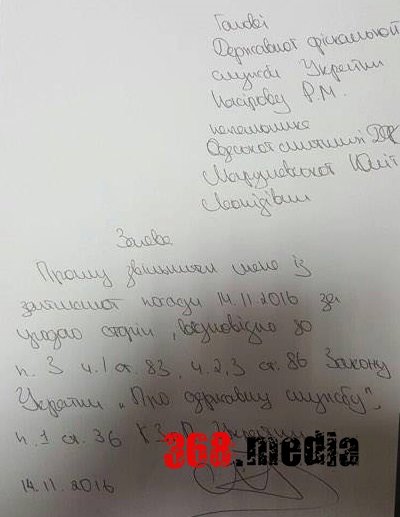 Голові
Державної фіскальної
служби України
Насірову Р.М.
начальника
Одеської митниці ДФС
Марушевської Юлії
Леонідівни
Заява
Прошу звільнити мене із
займаної посади 14.11.2016 за
угодою сторін, відповідно до
п. 3 ч.1 ст. 83, ч. 2,3 ст. 86 Закону
України „Про державну службу",
п. 1 ст. 36 КЗпП України
368.media
14.11.2016